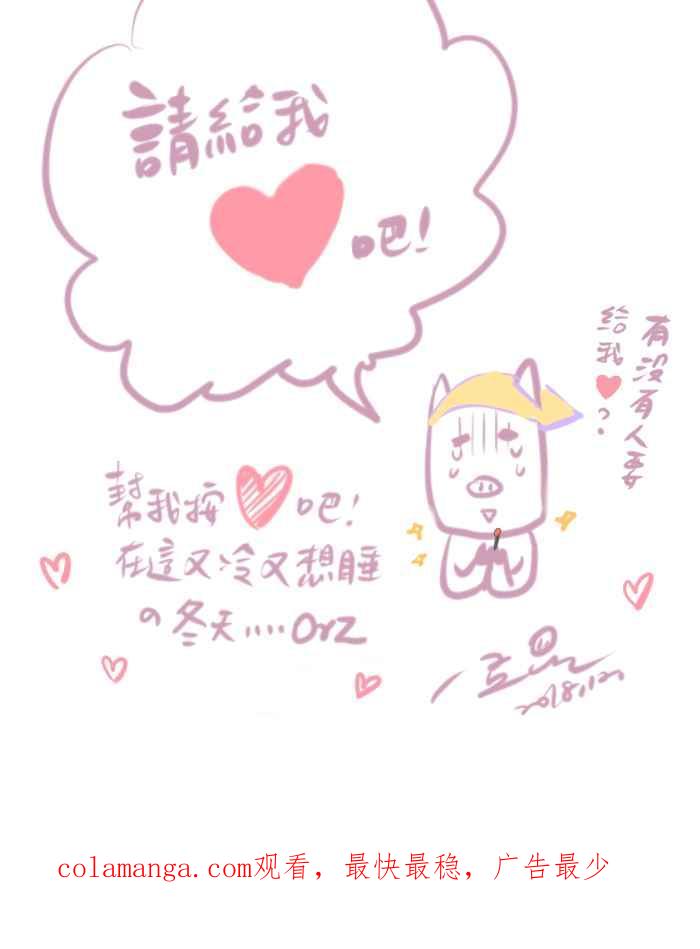 請給我
吧!
有沒有人要
給我?
幫我按 吧!
在這又冷又想睡
の冬天....Orz
colamanga.com观看，最快最稳，广告最少